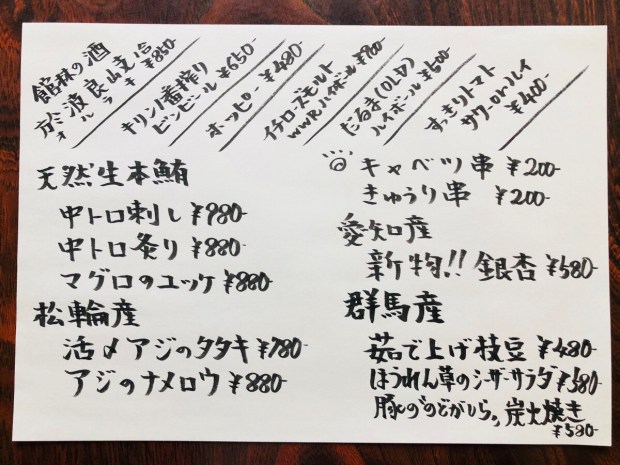 館林の酒
於波良岐 ¥850
オハラキ
キリン1番搾り
ビンビール ¥650
ホッピー ¥480
イチローズモルト
WWRハイボール ¥900
だるま(OLD)
ハイボール ¥600
すっきりトマト
サワーorハイ
¥400-
天然生本鮪
中トロ刺し ¥980-
中トロ炙り ¥880-
マグロのユッケ ¥880-
松輪産
活〆アジのタタキ ¥780-
アジのナメロウ ¥880-
キャベツ串 ¥200-
きゅうり串 ¥200-
愛知産
新物!! 銀杏 ¥580-
群馬産
茹で上げ枝豆 ¥480-
ほうれん草のシーザーサラダ ¥580-
豚の"のどがしら"炭火焼き
¥580-